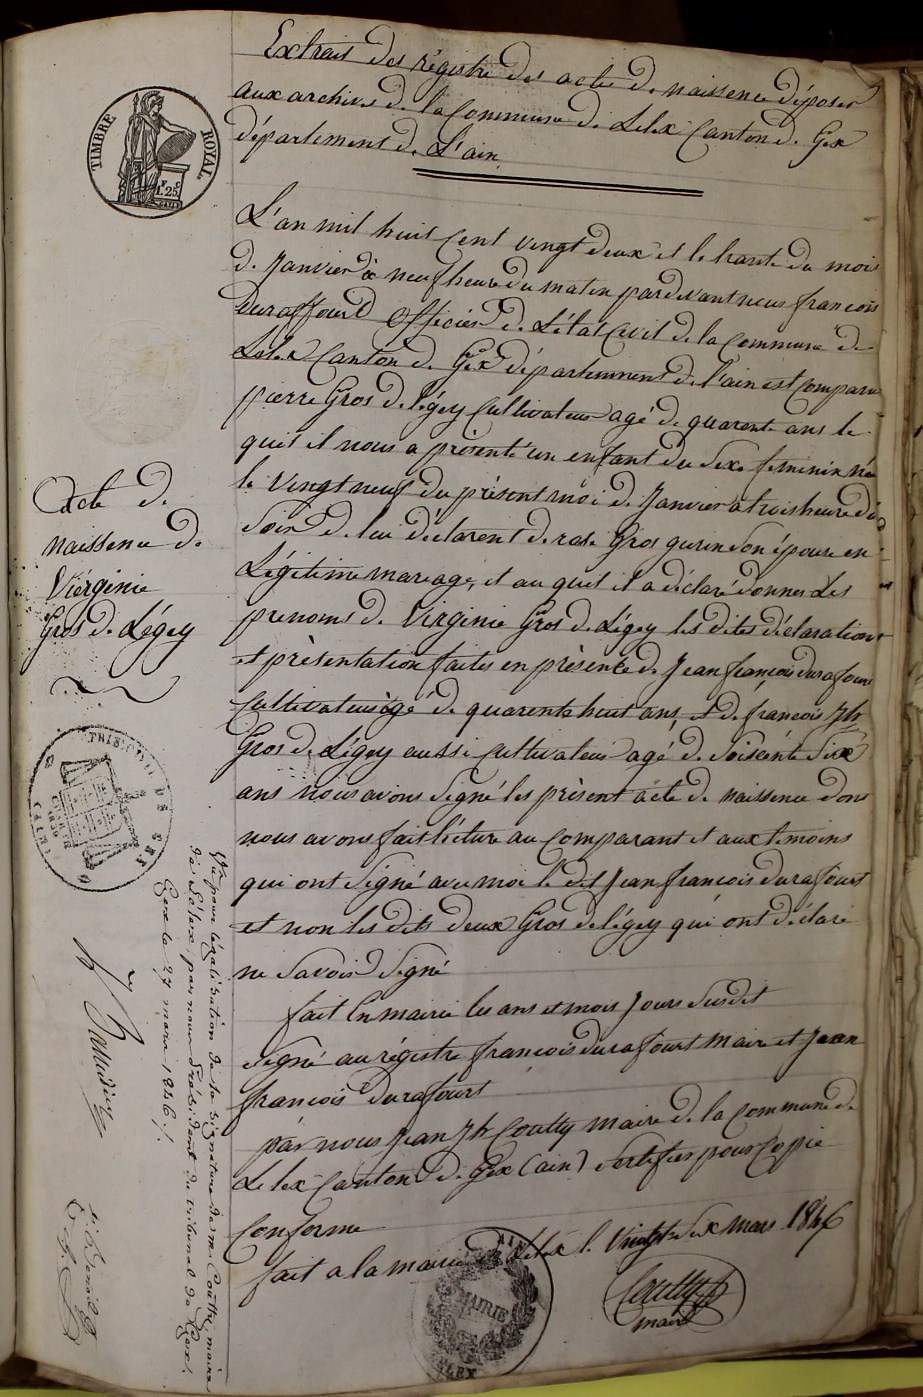 Extrait des régistre des actes de naissence déposer
aux archives de la Commune de Lelex Canton de Gex
département de L'ain
TIMBRE ROYAL
1.25
L'an mil huit Cent vingt deux et le trante du mois
de Janvier à neuf heure du matin par devant nous francois
duraffourd Officier de L'état Civil de la Commune de
Lelex Canton de Gex département de l'ain est Comparu
pierre Gros de légey Cultivateur agé de quarente ans le
quel il nous a présenté un enfant du Sexe feminin né
le vingt neuf du présent moi de Janvier a trois heure du
Soir de lui déclarent de rose Gros gurin son épouse en
Légitime mariage, et au quel il a déclaré donner Les
prenoms de Virginie Gros de Légey les dites déclaration
et présentation faites en présence de Jean françois durafour
Cultivateur agé de quarente huit ans, et de francois Jh
Gros de Légey aussi Cultivateur agé de Soisente Six
ans nous avons Signé les présent acte de naissence dont
nous avons fait lécture au Comparant et aux témoins
qui ont Signé avec moi le dit Jean françois durafourt
et non les dits deux Gros de légey qui ont déclaré
ne Savoir Signé
fait En mairie les ans et mois Jours Susdit
Signé au régistre francois durafourt maire et Jean
francois durafourt
par nous Jean Jh Coutty maire de la Commune de
Lelex Canton de Gex (ain) Certifier pour Coppie
Conforme
fait a la mairie de Lélex le Vingt Six mars 1846
Coutty
maire
MAIRIE
LELEX
AIN
Acte de
naissence de
Viérginie
Gros de Légey
TRIBUNAL DE GEX
Vu pour légalisation de la signature de m. Coutty, maire
de Lélex, par nous Président du tribunal de Gex.
Gex le 27 mars 1846.